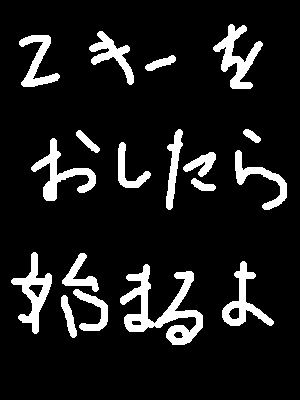 Zキーを
おしたら
始まるよ